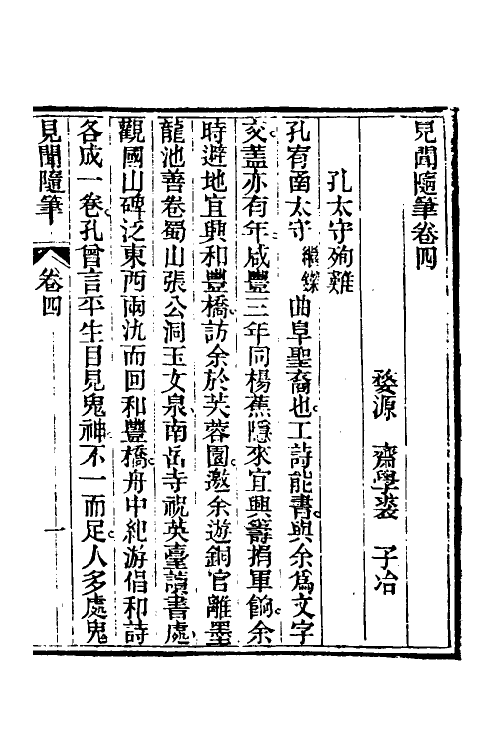 見聞隨筆卷四
婺源　齊學裘　子冶
孔太守殉難
孔宥函太守繼鑅曲阜聖裔也工詩能書與余為文字
交蓋亦有年咸豐三年同楊蕉隱來宜興籌捐軍餉余
時避地宜興和豐橋訪余於芙蓉園邀余遊銅官離墨
龍池善卷蜀山張公洞玉女泉南岳寺祝英臺讀書處
觀國山碑泛東西兩氿而回和豐橋舟中紀游倡和詩
各成一卷孔曾言平生目見鬼神不一而足人多處鬼
見聞隨筆　卷四　一